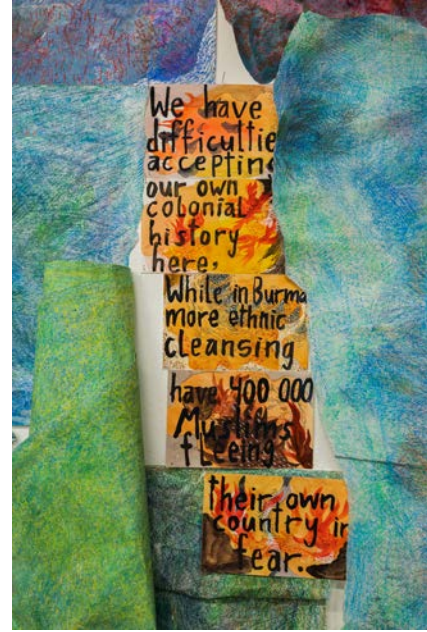 We have
difficultie
acceptin
our own
colonial
history
here,
While in Burma
more ethnic
cleansing
have 400 000
Muslims
fleeing
their own
country in
fear.